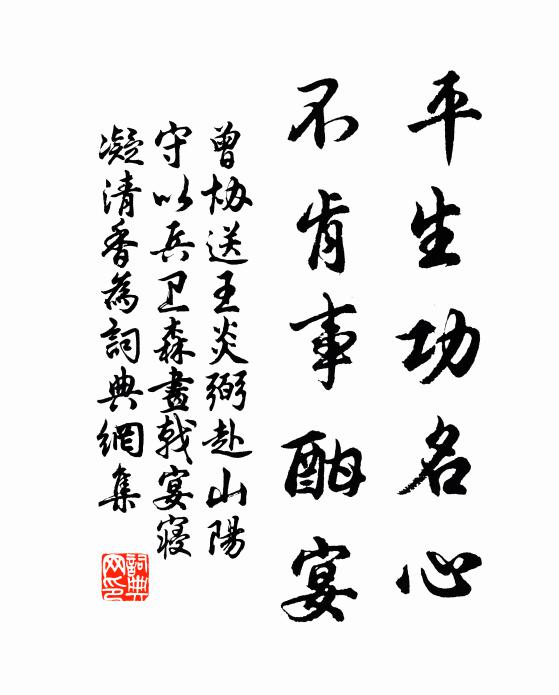 平生功名心
不肯事酣宴
曾协送王炎弼赴山陽
守以兵卫森畫戟宴寝
凝清香為詞典網集
詞典网印